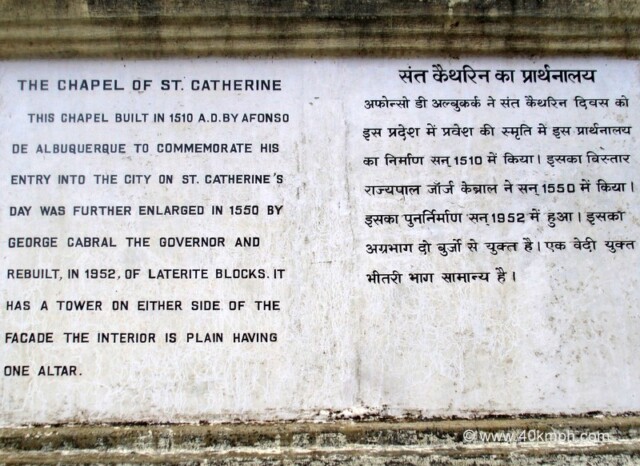 THE CHAPEL OF ST. CATHERINE
THIS CHAPEL BUILT IN 1510 A.D. BY AFONSO
DE ALBUQUERQUE TO COMMEMORATE HIS
ENTRY INTO THE CITY ON ST. CATHERINE'S
DAY WAS FURTHER ENLARGED IN 1550 BY
GEORGE CABRAL THE GOVERNOR AND
REBUILT, IN 1952, OF LATERITE BLOCKS. IT
HAS A TOWER ON EITHER SIDE OF THE
FACADE THE INTERIOR IS PLAIN HAVING
ONE ALTAR.
संत कैथरिन का प्रार्थनालय
अफोन्सो डी अल्बुकर्क ने संत कैथरिन दिवस को
इस प्रदेश में प्रवेश की स्मृति में इस प्रार्थनालय
का निर्माण सन् 1510 में किया। इसका विस्तार
राज्यपाल जॉर्ज केब्राल ने सन् 1550 में किया।
इसका पुनर्निर्माण सन् 1952 में हुआ। इसका
अग्रभाग दो बुर्जो से युक्त है। एक वेदी युक्त
भीतरी भाग सामान्य है।
© www.40kmph.com